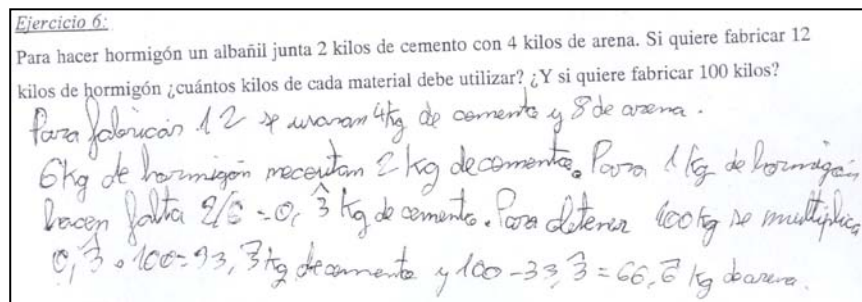 Ejercicio 6:
Para hacer hormigón un albañil junta 2 kilos de cemento con 4 kilos de arena. Si quiere fabricar 12
kilos de hormigón ¿cuántos kilos de cada material debe utilizar? ¿Y si quiere fabricar 100 kilos?
Para fabricar 12 se usaran 4kg de cemento y 8 de arena.
6kg de hormigón necesitan 2 kg de cemento. Para 1 kg de hormigón
hacen falta 2/6 = 0,3̂ kg de cemento. Para obtener 100kg se multiplica
0,3̂ • 100 = 33,3̂ kg de cemento y 100 - 33,3̂ = 66,6̂ kg de arena.